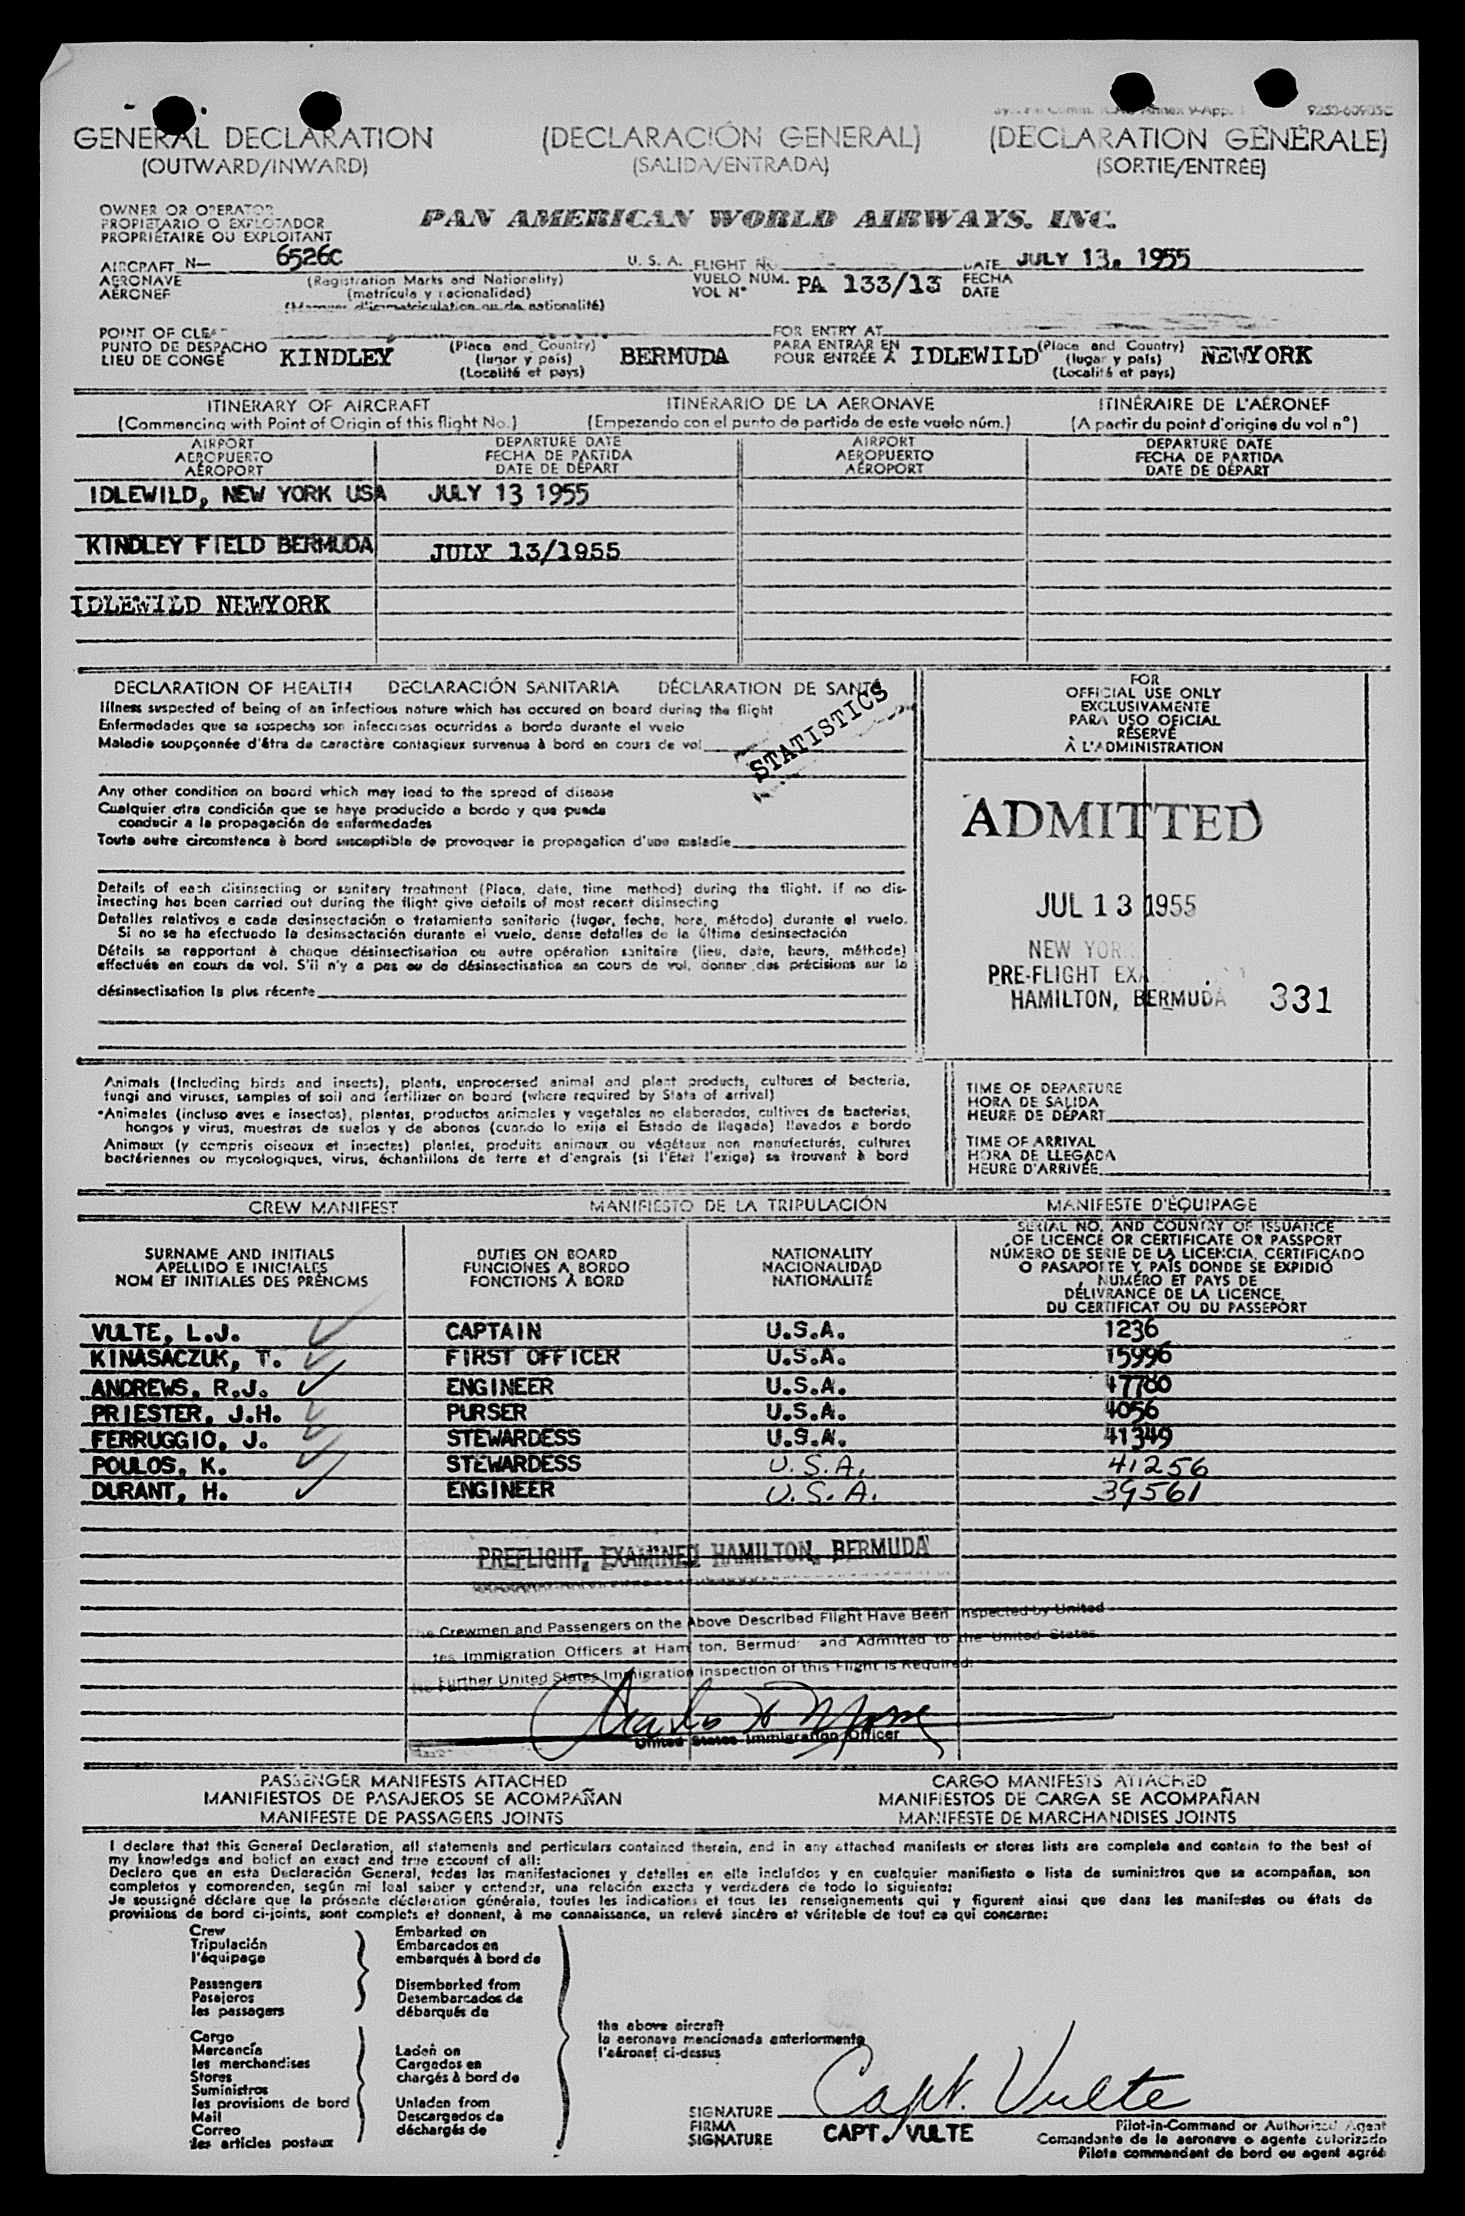 9-App.
GENERAL DECLARATION (DECLARACIÓN GENERAL) (DÉCLARATION GÉNÉRALE)
(OUTWARD/INWARD) (SALIDA/ENTRADA) (SORTIE/ENTRÉE)
OWNER OR OPERATOR
PROPIETARIO O EXPLOTADOR
PROPRIÉTAIRE OU EXPLOITANT
PAN AMERICAN WORLD AIRWAYS, INC.
AIRCRAFT N— 6526C U. S. A. FLIGHT No. DATE JULY 13, 1955
AERONAVE (Registration Marks and Nationality) VUELO NÚM. PA 133/13 FECHA
AÉRONEF (matrícula y nacionalidad) VOL N° DATE
(Marques d'immatriculation ou de nationalité)
POINT OF CLEAR FOR ENTRY AT
PUNTO DE DESPACHO KINDLEY (Place and Country) BERMUDA PARA ENTRAR EN IDLEWILD (Place and Country) NEWYORK
LIEU DE CONGÉ (lugar y país) POUR ENTRÉE À (lugar y país)
(Localité et pays) (Localité et pays)
ITINERARY OF AIRCRAFT ITINERARIO DE LA AERONAVE ITINÉRAIRE DE L'AÉRONEF
(Commencing with Point of Origin of this flight No.) (Empezando con el punto de partida de este vuelo núm.) (A partir du point d'origine du vol n°)
AIRPORT DEPARTURE DATE AIRPORT DEPARTURE DATE
AEROPUERTO FECHA DE PARTIDA AEROPUERTO FECHA DE PARTIDA
AÉROPORT DATE DE DÉPART AÉROPORT DATE DE DÉPART
IDLEWILD, NEW YORK USA JULY 13 1955
KINDLEY FIELD BERMUDA JULY 13/1955
IDLEWILD NEWYORK
DECLARATION OF HEALTH DECLARACIÓN SANITARIA DÉCLARATION DE SANTÉ
Illness suspected of being of an infectious nature which has occured on board during the flight
Enfermedades que se sospecha son infecciosas ocurridas a bordo durante el vuelo
Maladie soupçonnée d'être de caractère contagieux survenue à bord en cours de vol
STATISTICS
Any other condition on board which may lead to the spread of disease
Cualquier otra condición que se haya producido a bordo y que pueda
conducir a la propagación de enfermedades
Toute autre circonstance à bord susceptible de provoquer la propagation d'une maladie
Details of each disinsecting or sanitary treatment (Place, date, time method) during the flight. If no dis-
insecting has been carried out during the flight give details of most recent disinsecting
Detalles relativos a cada desinsectación o tratamiento sanitario (lugar, fecha, hora, método) durante el vuelo.
Si no se ha efectuado la desinsectación durante el vuelo, dense detalles de la última desinsectación
Détails se rapportant à chaque désinsectisation ou autre opération sanitaire (lieu, date, heure, méthode)
effectuée en cours de vol. S'il n'y a pas eu de désinsectisation en cours de vol, donner des précisions sur la
désinsectisation la plus récente
FOR
OFFICIAL USE ONLY
EXCLUSIVAMENTE
PARA USO OFICIAL
RÉSERVÉ
À L'ADMINISTRATION
ADMITTED
JUL 13 1955
NEW YOR
PRE-FLIGHT EXA
HAMILTON, BERMUDA 331
Animals (Including birds and insects), plants, unprocersed animal and plant products, cultures of bacteria,
fungi and viruses, samples of soil and fertilizer on board (where required by State of arrival)
Animales (incluso aves e insectos), plantas, productos animales y vegetales no elaborados, cultivos de bacterias,
hongos y virus, muestras de suelos y de abonos (cuando lo exija el Estado de llegada) llevados a bordo
Animaux (y compris oiseaux et insectes) plantes, produits animaux ou végétaux non manufacturés, cultures
bactériennes ou mycologiques, virus, échantillons de terre et d'engrais (si l'État l'exige) se trouvant à bord
TIME OF DEPARTURE
HORA DE SALIDA
HEURE DE DÉPART
TIME OF ARRIVAL
HORA DE LLEGADA
HEURE D'ARRIVÉE
CREW MANIFEST MANIFIESTO DE LA TRIPULACIÓN MANIFESTE D'ÉQUIPAGE
SURNAME AND INITIALS
APELLIDO E INICIALES
NOM ET INITIALES DES PRÉNOMS
DUTIES ON BOARD
FUNCIONES A BORDO
FONCTIONS À BORD
NATIONALITY
NACIONALIDAD
NATIONALITÉ
SERIAL NO. AND COUNTRY OF ISSUANCE
OF LICENCE OR CERTIFICATE OR PASSPORT
NÚMERO DE SERIE DE LA LICENCIA, CERTIFICADO
O PASAPORTE Y PAÍS DONDE SE EXPIDIÓ
NUMÉRO ET PAYS DE
DÉLIVRANCE DE LA LICENCE,
DU CERTIFICAT OU DU PASSEPORT
VULTE, L.J. CAPTAIN U.S.A. 1236
KINASACZUK, T. FIRST OFFICER U.S.A. 15996
ANDREWS, R.J. ENGINEER U.S.A. 47780
PRIESTER, J.H. PURSER U.S.A. 4056
FERRUGGIO, J. STEWARDESS U.S.A. 41349
POULOS, K. STEWARDESS U.S.A. 41256
DURANT, H. ENGINEER U.S.A. 39561
PREFLIGHT, EXAMINED HAMILTON, BERMUDA
Crewmen and Passengers on the Above Described Flight Have Been Inspected by United
tes Immigration Officers at Ham ton, Bermud and Admitted to the United States
No Further United States Immigration Inspection of this Flight is Required.
United States Immigration Officer
PASSENGER MANIFESTS ATTACHED CARGO MANIFESTS ATTACHED
MANIFIESTOS DE PASAJEROS SE ACOMPAÑAN MANIFIESTOS DE CARGA SE ACOMPAÑAN
MANIFESTE DE PASSAGERS JOINTS MANIFESTE DE MARCHANDISES JOINTS
I declare that this General Declaration, all statements and particulars contained therein, and in any attached manifests or stores lists are complete and contain to the best of
my knowledge and belief an exact and true account of all:
Declaro que en esta Declaración General, todas las manifestaciones y detalles en ella incluídos y en cualquier manifiesto o lista de suministros que se acompañan, son
completos y comprenden, según mi leal saber y entender, una relación exacta y verdadera de todo lo siguiente:
Je soussigné déclare que la présente déclaration générale, toutes les indications et tous les renseignements qui y figurent ainsi que dans les manifestes ou états de
provisions de bord ci-joints, sont complets et donnent, à ma connaissance, un relevé sincère et véritable de tout ce qui concerne:
Crew Embarked on
Tripulación Embarcados en
l'équipage embarqués à bord de
Passengers Disembarked from
Pasajeros Desembarcados de
les passagers débarqués de
Cargo
Mercancía Laden on
les merchandises Cargados en
Stores chargés à bord de
Suministros
les provisions de bord Unladen from
Mail Descargados de
Correo déchargés de
les articles postaux
the above aircraft
la aeronave mencionada anteriormente
l'aéronef ci-dessus
Capt. Vulte
SIGNATURE
FIRMA
SIGNATURE
CAPT. VULTE
Pilot-in-Command or Authorized Agent
Comandante de la aeronave o agente autorizado
Pilote commandant de bord ou agent agréé